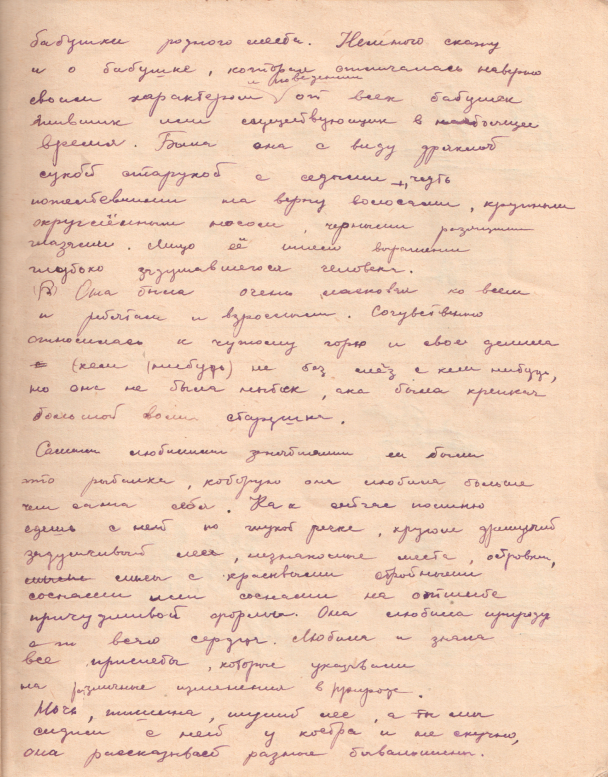 бабушки родного места. Немного скажу
и о бабушке, которая отличалась наверно
и поведением
своим характером от всех бабушек
живших или существующих в
время. Была она с виду дряхлой
сухой старухой с седыми, чуть
пожелтевшими на верху волосами, крупным
округлённым носом, черными
глазами. Лицо её имело выражение
глубоко задумавшегося человека.
Она была очень ласковая ко всем
и ребятам и взрослым. Сочувственно
относилась к чужому горю и свое делила
(кем нибудь) не без слёз с кем нибудь,
но она не была нытик, она была крепкая
большой воли старушка.
Самым любимым занятием ее была
это рыбалка, которую она любила больше
чем сама себя. Как сейчас помню
едешь с ней по глухой речке, кругом дремучий
задумчивый лес, незнакомые места, островки,
мысы с красивыми стройными
соснами или соснами на отшибе
причудливой формы. Она любила природу
от всего сердца. Любила и знала
все приметы, которые указывали
на различные изменения в природе.
Ночь, тишина, глухой лес, а мы
сидим с ней у костра и не скучно,
она рассказывает разные бывальщины.